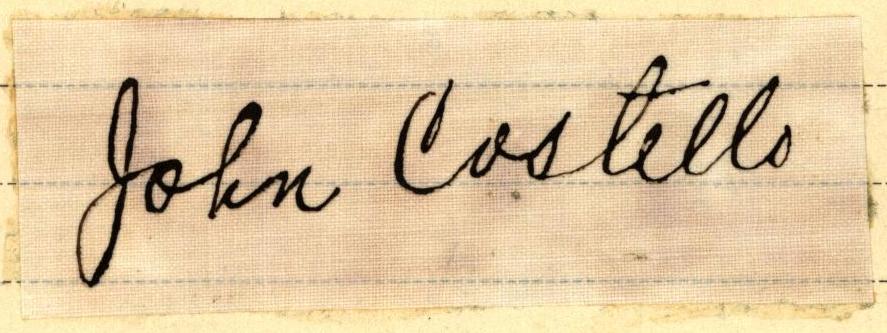 John Costello